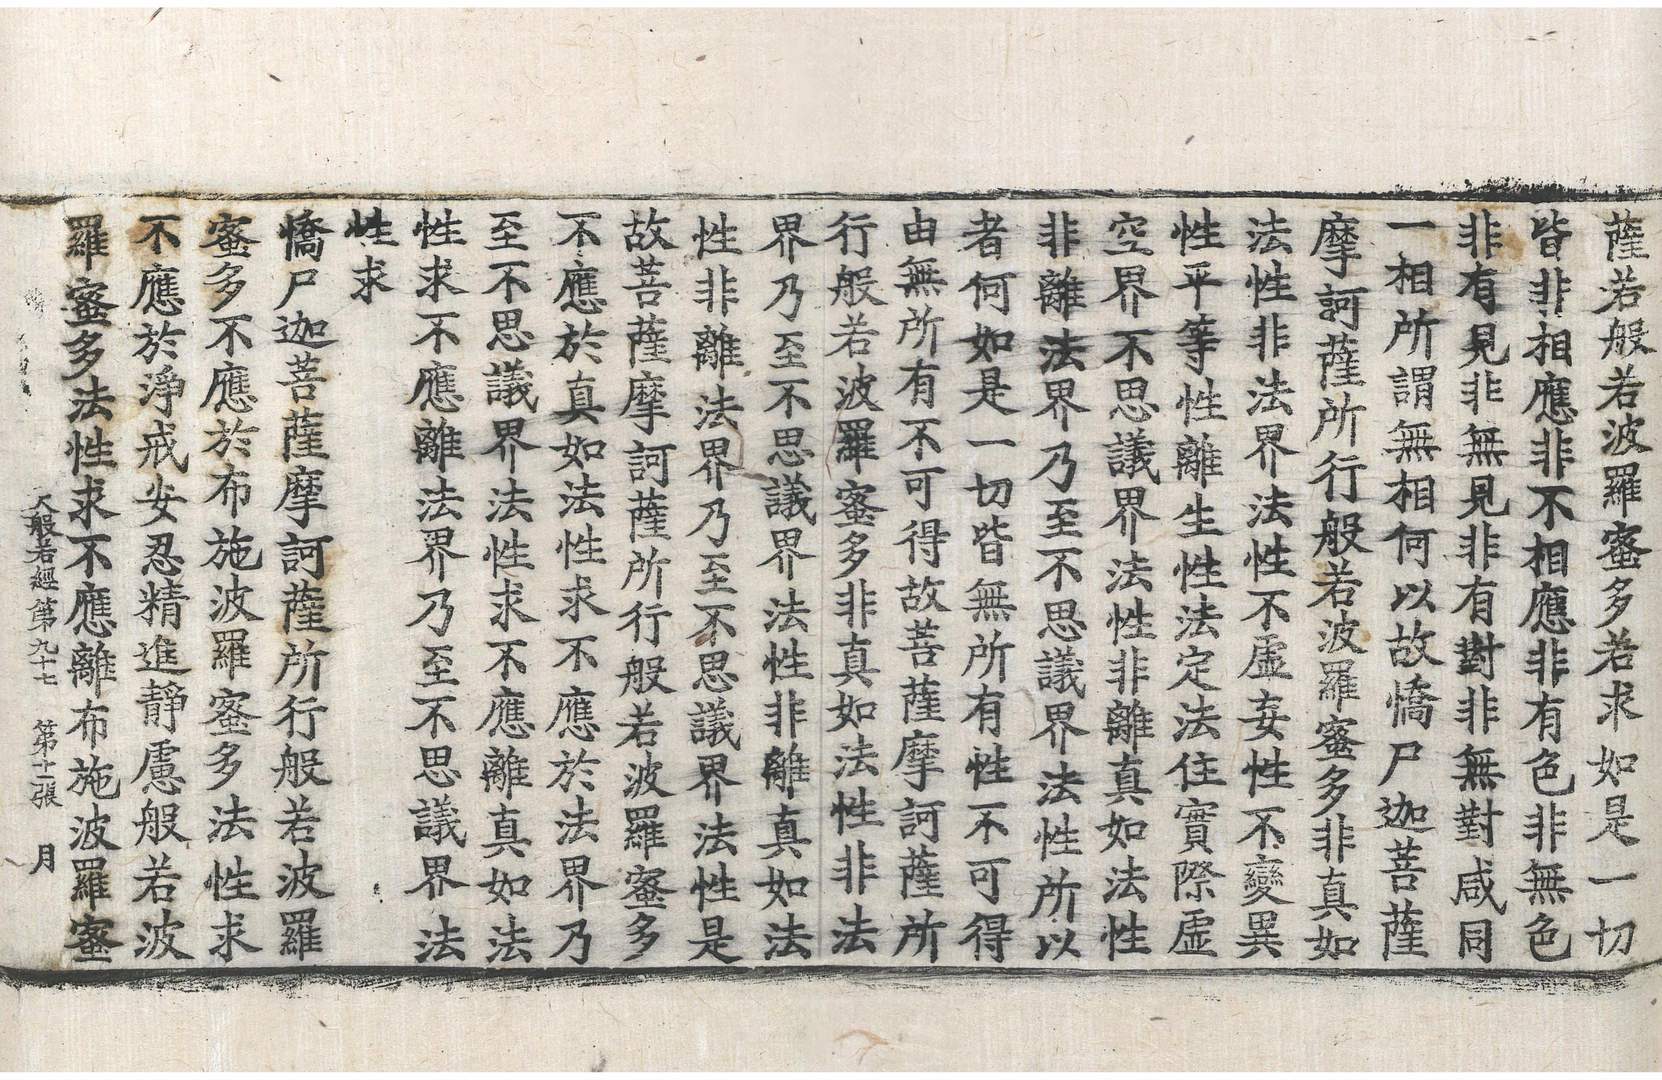 薩若般若波羅蜜多若求如是一切
皆非相應非不相應非有色非無色
非有見非無見非有對非無對咸同
一相所謂無相何以故憍尸迦菩薩
摩訶薩所行般若波羅蜜多非真如
法性非法界法性不虛妄性不變異
性平等性離生性法定法住實際虛
空界不思議界法性非離真如法性
非離法界乃至不思議界法性所以
者何如是一切皆無所有性不可得
由無所有不可得故菩薩摩訶薩所
行般若波羅蜜多非真如法性非法
界乃至不思議界法性非離真如法
性非離法界乃至不思議界法性是
故菩薩摩訶薩所行般若波羅蜜多
不應於真如法性求不應於法界乃
至不思議界法性求不應離真如法
性求不應離法界乃至不思議界法
性求
憍尸迦菩薩摩訶薩所行般若波羅
蜜多不應於布施波羅蜜多法性求
不應於淨戒安忍精進靜慮般若波
羅蜜多法性求不應離布施波羅蜜
大般若經第九十七 第十二張 月